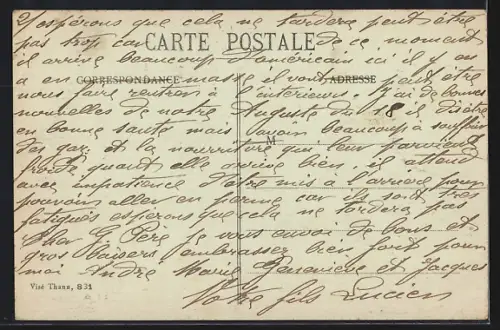 J'espérons que cela ne tardera peut être
pas trop car de ce moment
CARTE POSTALE
il arrive beaucoup d'américain ici il y en
a en masse il vont peut être
CORRESPONDANCE
ADRESSE
nous faire rentrer à l'intérieurs. J'ai de bonnes
nouvelles de notre Auguste du 18 il
en bonne santé mais avoir beaucoup à souffrir
M
des gaz et la nourriture qui leur parvient
froide quant elle arrive bien. il attend
avec impatience d'être mis à l'arrière pour
pouvoir aller en perme car il sont très
fatigués esperons que cela ne tardera pas
Cher G Père je vous envoi de bons et
gros baisers embrasser bien fort pour
moi André Marie Geneviève et Jacques
Votre fils Lucien
Visé Thann, 831